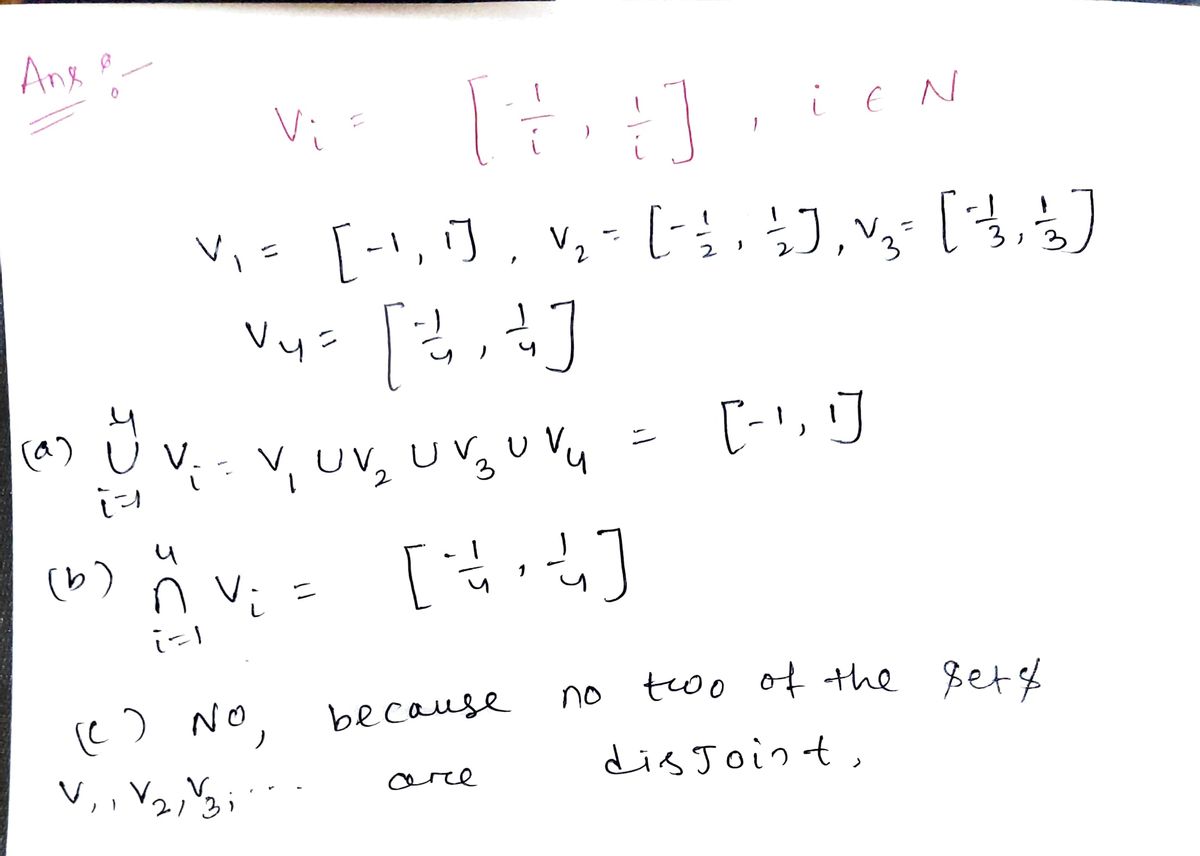 Ans :-
V_i = [-1/i, 1/i], i ∈ N
V_1 = [-1, 1], V_2 = [-1/2, 1/2], V_3 = [-1/3, 1/3]
V_4 = [-1/4, 1/4]
(a) ⋃_{i=1}^{4} V_i = V_1 ∪ V_2 ∪ V_3 ∪ V_4 = [-1, 1]
(b) ⋂_{i=1}^{4} V_i = [-1/4, 1/4]
(c) NO, because no two of the sets
V_1, V_2, V_3, ... are disjoint,